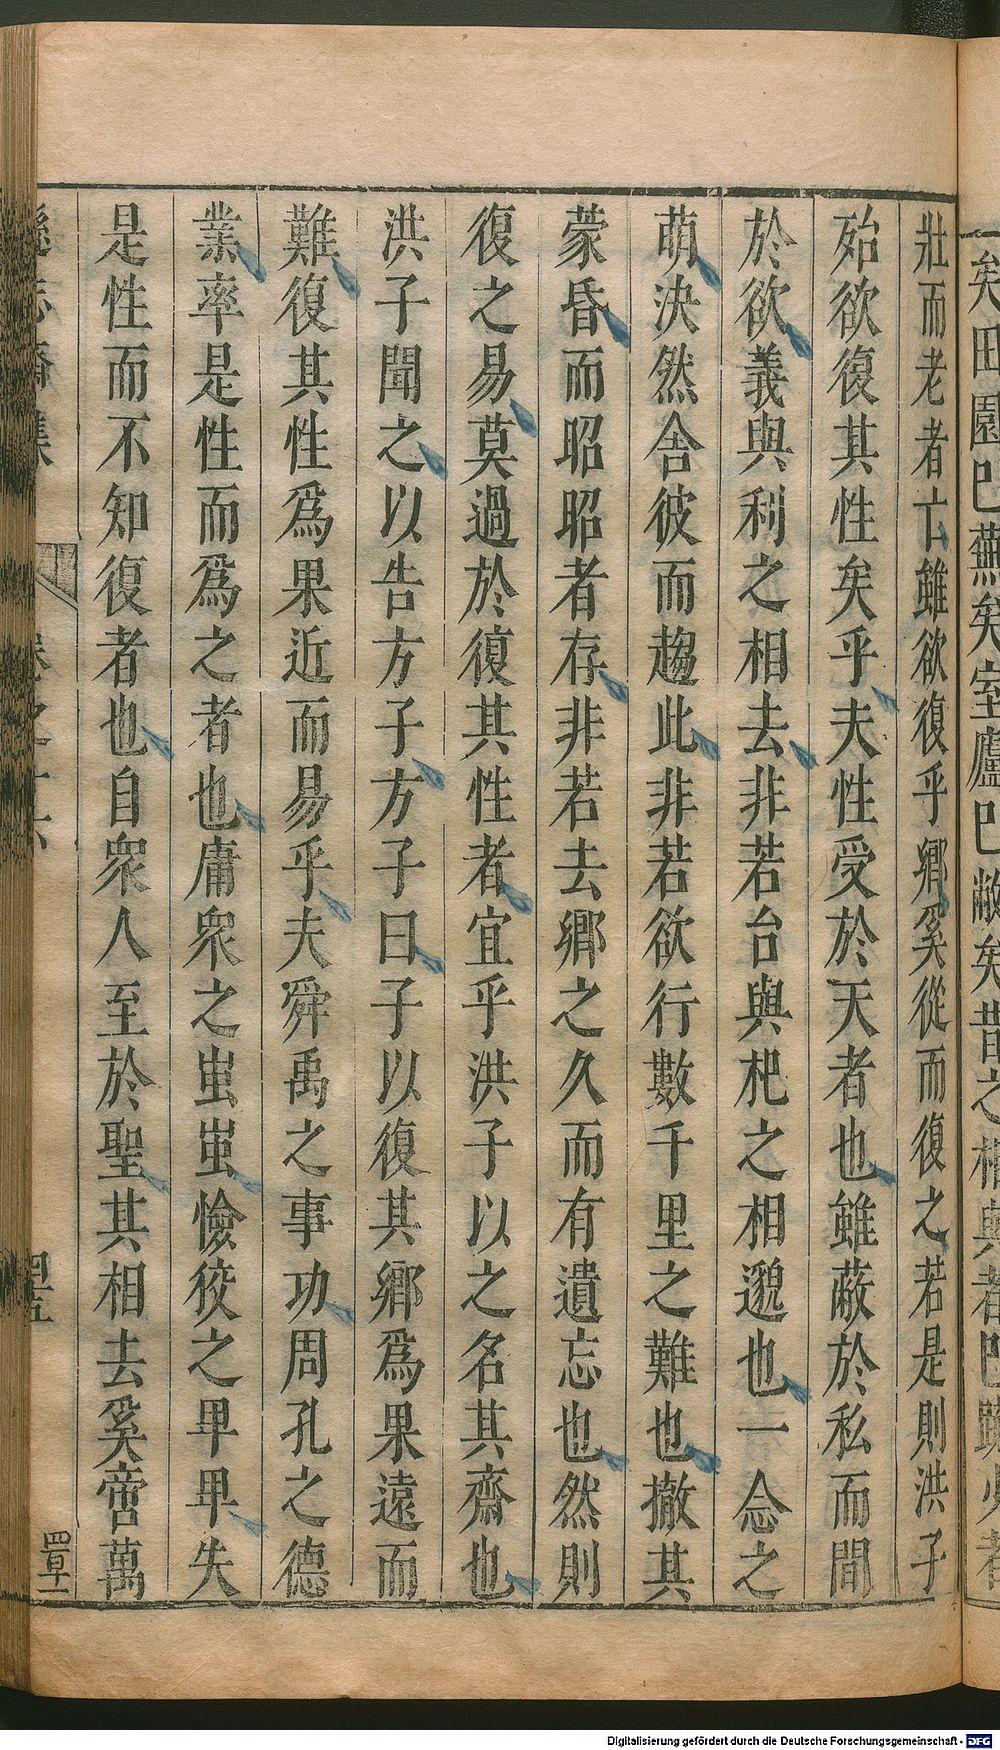 矣田園巳蕪矣室廬巳敝矣昔之相與者巳
壯而老者亡雖欲復乎鄉奚從而復之若是則洪子
殆欲復其性矣乎夫性受於天者也雖蔽於私而間
於欲義與利之相去非若台與杞之相邈也一念之
萌決然舍彼而趨此非若欲行數千里之難也撤其
蒙昏而昭昭者存非若去鄉之久而有遺忘也然則
復之易莫過於復其性者宜乎洪子以之名其齋也
洪子聞之以告方子方子曰子以復其鄉爲果遠而
難復其性爲果近而易乎夫舜禹之事功周孔之德
業率是性而爲之者也庸衆之蚩蚩憸狡之卑卑失
是性而不知復者也自衆人至於聖其相去奚啻萬
遜志齋集
卷之十六
四五
Digitalisierung gefördert durch die Deutsche Forschungsgemeinschaft - DFG